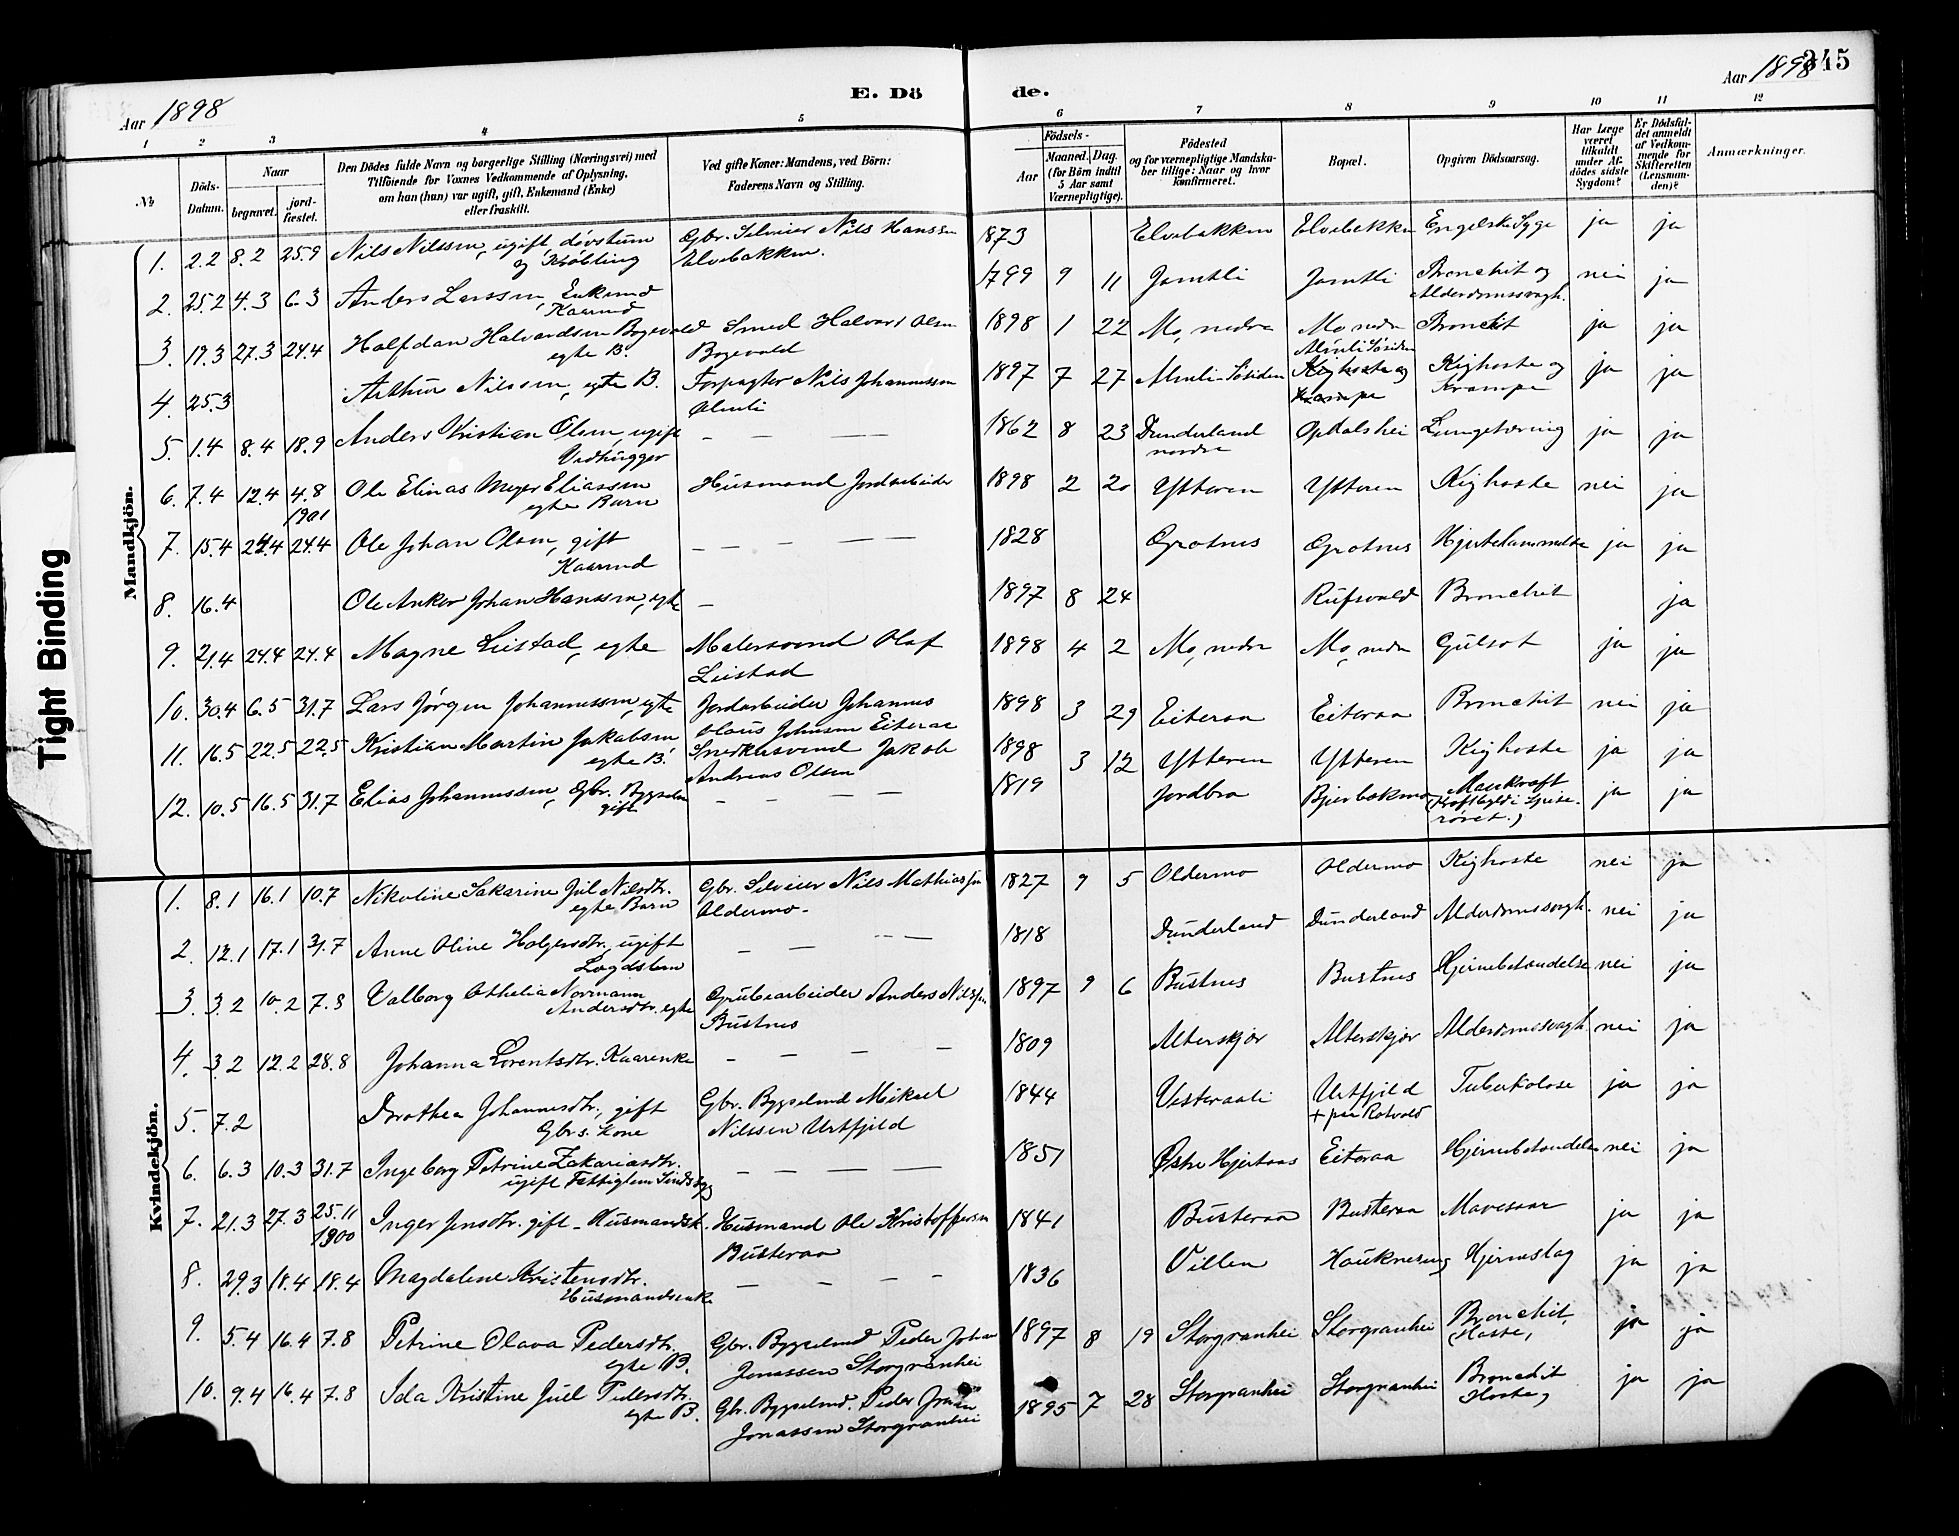 Aar 1898
E. Döde.
Aar 1898
345
1 2 3 4 5 6 7 8 9 10 11 12
No
Döds-Datum.
Naar
begravet.
jord-fæstet.
Den Dödes fulde Navn og borgerlige Stilling (Næringsvei) med
Tilföiende for Voxnes Vedkommende af Oplysning,
om han (hun) var ugift, gift, Enkemand (Enke)
eller fraskilt.
Ved gifte Koner: Mandens, ved Börn:
Faderens Navn og Stilling.
Födsels-
Aar
Maaned. Dag.
(for Börn indtil
5 Aar samt
Værnepligtige).
Födested
og for værnepligtige Mandska-
ber tillige: Naar og hvor
konfirmeret.
Bopæl.
Opgiven Dödsaarsag.
Har Læge
været
tilkaldt
under Af-
dödes sidste
Sygdom?
Er Dödsfal-
det anmeldt
af Vedkom-
mende for
Skifteretten
(Lensman-
den)?
Anmærkninger.
Mandkjön.
1. 2.2 8.2 25.9 Nils Nilssen, ugift, døvstum Gbr. Selveier Nils Hanssen 1873 Elvebakken Elvebakken Engelsk Syge ja ja
og Krøbling Elvebakken.
2. 25.2 4.3 6.3 Anders Larssen, Enkemd 1799 9 11 Jamtli Jamtli Bronchit og nei ja
Kaarmd Alderdomssvagh.
3. 19.3 27.3 24.4 Halfdan Halvardsen Bogevold Smed Halvard Olsen 1898 1 22 Mo, nedre Mo nedre Bronchit ja ja
egte B. Bogevold
4. 25.3 Arthur Nilssen, egte B. Forpagter Nils Johannessen 1897 7 27 Kighoste og Kighoste og ja ja
Krampe Krampe
5 1.4 8.4 18.9 Anders Kristian Olsen, ugift — — — — 1862 8 23 Dunderland Opdalshei Lungetæring ja ja
Vedhugger nordre
6. 7.4 12.4 4.8 Ole Elinas Meyer Eliassen Husmand Jordarbeider 1898 2 20 Ytteren Ytteren Kighoste nei ja
1901 egte Barn
7. 15.4 24.4 24.4 Ole Johan Olsen, gift — — — — — 1828 Grotnes Grotnes Hjertelammelse ja ja
Kaarmd
8. 16.4 Ole Anker Johan Hanssen, egte — 1897 8 24 Rufsvold Bronchit ja
9. 21.4 24.4 24.4 Magne Leistad, egte Malersvend Olaf 1898 4 2 Mo, nedre Mo, nedre Gulsot ja ja
Leistad
10. 30.4 6.5 31.7 Lars Jørgen Johannessen, egte Jordarbeider Johannes 1898 3 29 Eiteraa Eiteraa Bronchit nei ja
Olaus Johnsen Eiteraa
11. 16.5 22.5 22.5 Kristian Martin Jakobsen Snedkersvend Jakob 1898 3 12 Ytteren Ytteren Kighoste ja ja
egte B. Andreas Olsen
12. 10.5 16.5 31.7 Elias Johannessen, Gbr. Bygselm — — — — 1819 Jordbro Bjerbækmo Mavekræft ja ja
gift (Kræftbyld i Spise-
røret.)
Kvindekjön.
1. 8.1 16.1 10.7 Nikoline Sakarine Jul Nilsdtr. Gbr. Selveier Nils Mathiassen 1827 9 5 Oldermo Oldermo Kighoste nei ja
egte Barn Oldermo.
2. 12.1 17.1 31.7 Anne Oline Holgersdtr. ugift — — — — 1818 Dunderland Dunderland Alderdomssvagh. nei ja
Lægdslem
3. 3.2 10.2 7.8 Valborg Othelia Normann Grubearbeider Anders Nilssen 1897 9 6 Bustnes Bustnes Hjernebetændelse nei ja
Andersdtr. egte Bustnes
4. 3.2 12.2 28.8 Johanna Lorentsdtr. Kaarenke — — — — 1809 Alterskjær Alterskjær Alderdomssvagh. nei ja
5. 7.2 Dorothea Johannesdtr., gift Gbr. Bygselmd Mikael 1844 Vesteraali Urtfjeld Tuberkolose ja ja
Gbr.s. Kone Nilssen Urtfjeld + paa Rotvold
6. 6.3 10.3 31.7 Ingeborg Petrine Zakariasdtr. — — — — 1851 Østre Hjertaas Eiteraa Hjernebetændelse nei ja
ugift Fattiglem Sindssyg
7. 21.3 27.3 25.11 Inger Jensdtr. gift - Husmandsk. Husmand Ole Kristoffersen 1841 Busteraa Busteraa Mavesaar ja ja
1900 Busteraa
8. 29.3 18.4 18.4 Magdalene Kristensdtr. — — — — 1836 Villen Hauknesvg Hjerneslag ja ja
Husmandsenke
9. 5.4 16.4 7.8 Petrine Olava Pedersdtr. Gbr. Bygselmd Peder Johan 1897 8 19 Storgranhei Storgranhei Bronchit, ja ja
egte B. Jonassen Storgranhei (Hoste)
10. 9.4 16.4 7.8 Ida Kristine Juel Pedersdtr. Gbr. Bygselmd. Peder Johan 1895 7 28 Storgranhei Storgranhei Bronchit ja ja
egte B. Jonassen Storgranhei Hoste)
Tight Binding